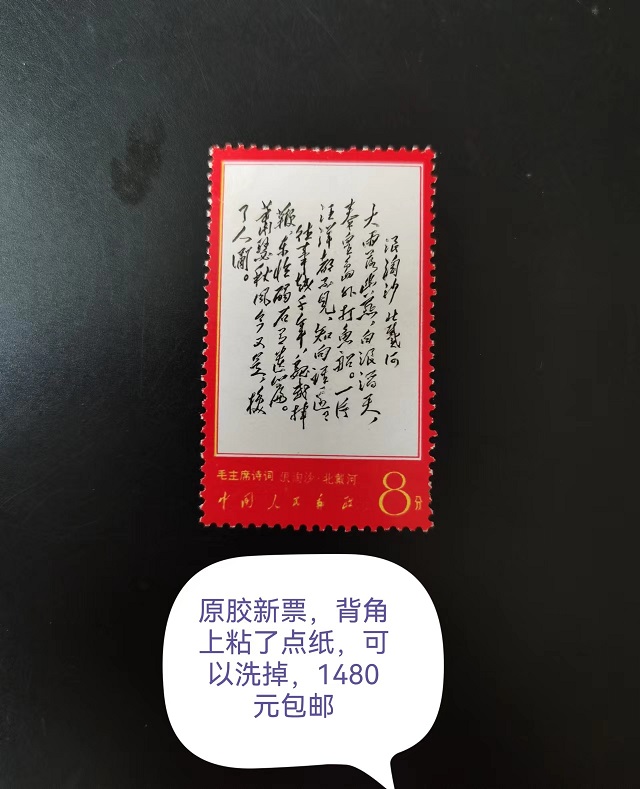 浪淘沙 北戴河
大雨落幽燕,白浪滔天,
秦皇島外打魚船。一片
汪洋都不見,知向誰邊
往事越千年,魏武揮
鞭,东临碣石有遺篇。
蕭瑟秋風今又是,換
了人間。
毛主席诗词 浪淘沙·北戴河
中国人民邮政 8分
原胶新票，背角
上粘了点纸，可
以洗掉，1480
元包邮